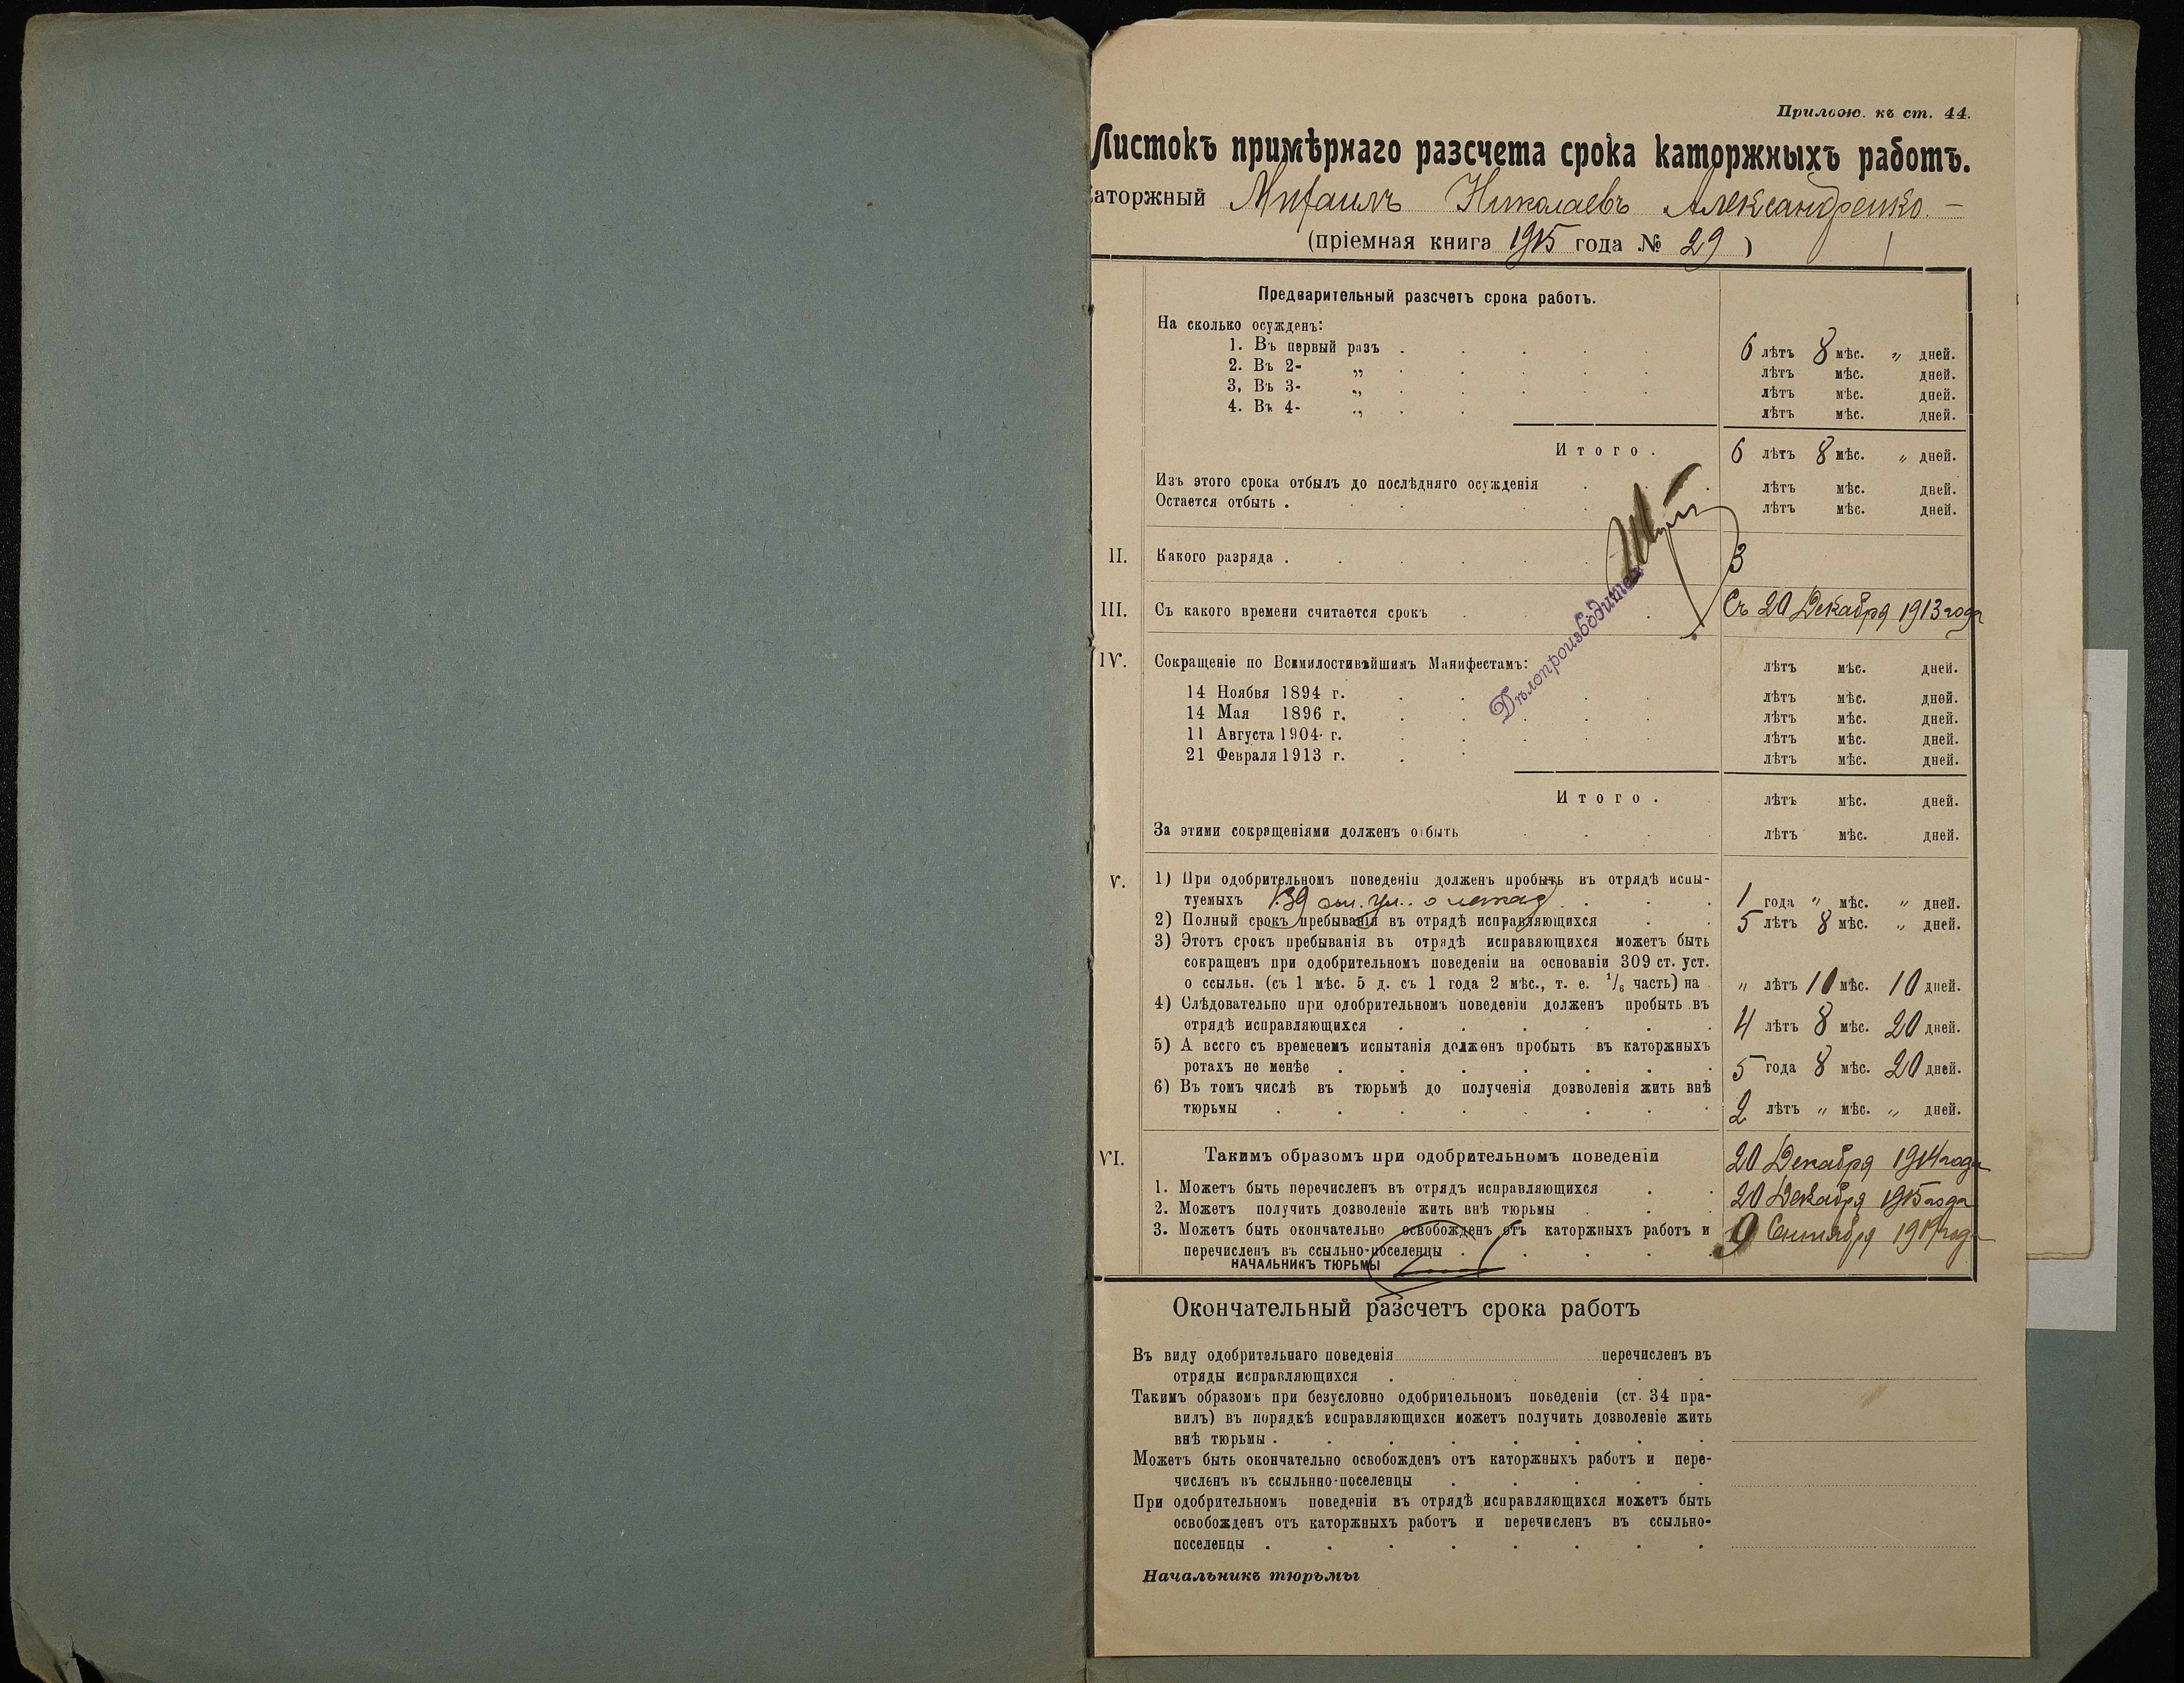 Прилож. къ ст. 44.
Листокъ примѣрнаго разсчета срока каторжныхъ работъ.
аторжный Михаилъ Николаевъ Александренко. —
(пріемная книга 1915 года № 29)
Предварительный разсчетъ срока работъ.
На сколько осужденъ:
1. Въ первый разъ . 6 лѣтъ 8 мѣс. „ дней.
2. Въ 2- „ лѣтъ мѣс. дней.
3, Въ 3- „ лѣтъ мѣс. дней.
4. Въ 4- „ лѣтъ мѣс. дней.
Итого . 6 лѣтъ 8 мѣс. „ дней.
Изъ этого срока отбылъ до послѣдняго осужденія . лѣтъ мѣс. дней.
Остается отбыть . лѣтъ мѣс. дней.
II. Какого разряда . 3
III. Съ какого времени считается срокъ . Съ 20 Декабря 1913 года
Дѣлопроизводитель
IV. Сокращеніе по Всемилостивѣйшимъ Манифестамъ: лѣтъ мѣс. дней.
14 Ноября 1894 г. . лѣтъ мѣс. дней.
14 Мая 1896 г. . лѣтъ мѣс. дней.
11 Августа 1904 г. . лѣтъ мѣс. дней.
21 Февраля 1913 г. . лѣтъ мѣс. дней.
Итого . лѣтъ мѣс. дней.
За этими сокращеніями долженъ отбыть . лѣтъ мѣс. дней.
V. 1) При одобрительномъ поведеніи долженъ пробыть въ отрядѣ испы-
туемыхъ . 1 года „ мѣс. „ дней.
2) Полный срокъ пребыванія въ отрядѣ исправляющихся . 5 лѣтъ 8 мѣс. „ дней.
3) Этотъ срокъ пребыванія въ отрядѣ исправляющихся можетъ быть
сокращенъ при одобрительномъ поведеніи на основаніи 309 ст. уст.
о ссыльн. (съ 1 мѣс. 5 д. съ 1 года 2 мѣс., т. е. 1/6 часть) на . „ лѣтъ 10 мѣс. 10 дней.
4) Слѣдовательно при одобрительномъ поведеніи долженъ пробыть въ
отрядѣ исправляющихся . 4 лѣтъ 8 мѣс. 20 дней.
5) А всего съ временемъ испытанія долженъ пробыть въ каторжныхъ
ротахъ не менѣе . 5 года 8 мѣс. 20 дней.
6) Въ томъ числѣ въ тюрьмѣ до полученія дозволенія жить внѣ
тюрьмы . 2 лѣтъ „ мѣс. „ дней.
VI. Такимъ образомъ при одобрительномъ поведеніи
1. Можетъ быть перечисленъ въ отрядъ исправляющихся . 20 Декабря 1914 года
2. Можетъ получить дозволеніе жить внѣ тюрьмы . 20 Декабря 1915 года
3. Можетъ быть окончательно освобожденъ отъ каторжныхъ работъ и
перечисленъ въ ссыльно-поселенцы . 9 Сентября 1919 года
НАЧАЛЬНИКЪ ТЮРЬМЫ
Окончательный разсчетъ срока работъ
Въ виду одобрительнаго поведенія перечисленъ въ
отряды исправляющихся .
Такимъ образомъ при безусловно одобрительномъ поведеніи (ст. 34 пра-
вилъ) въ порядкѣ исправляющихся можетъ получить дозволеніе жить
внѣ тюрьмы .
Можетъ быть окончательно освобожденъ отъ каторжныхъ работъ и пере-
численъ въ ссыльнно-поселенцы .
При одобрительномъ поведеніи въ отрядѣ исправляющихся можетъ быть
освобожденъ отъ каторжныхъ работъ и перечисленъ въ ссыльно-
поселенцы .
Начальникъ тюрьмы